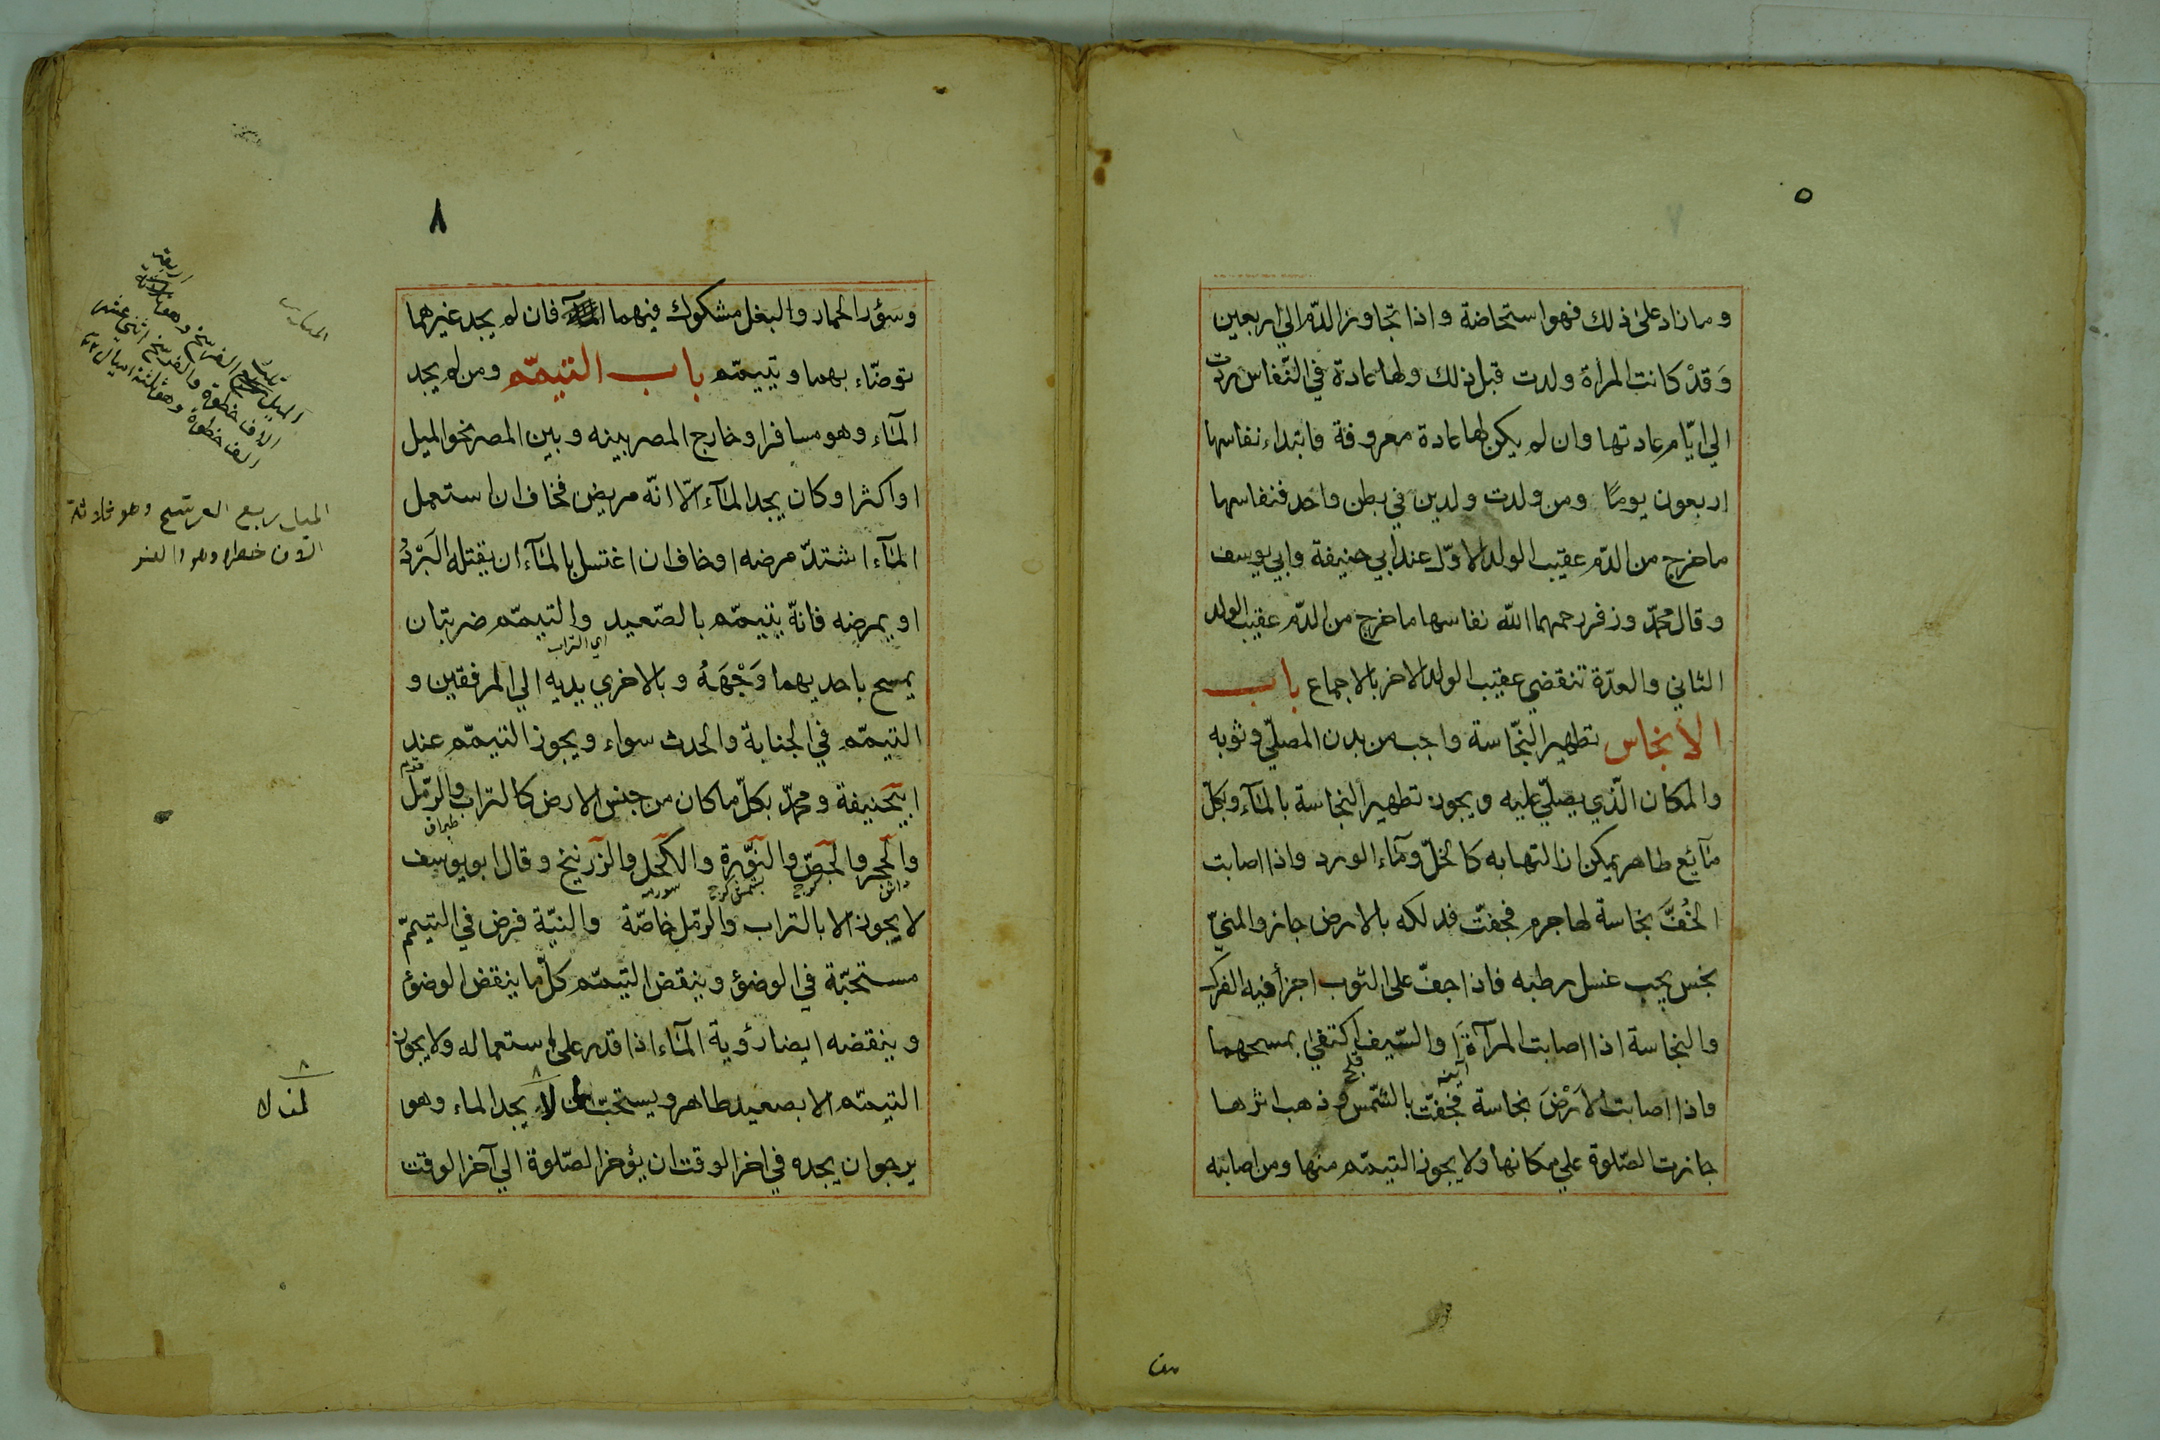 ٥
وما زاد على ذلك فهو استحاضة واذا تجاوز الدّم الي اربعين
وَقدْ كانت المراة ولدت قبل ذلك ولها عادة في النّفاس ردّت
الي ايّام عادتها وان لم يكن لها عادة معروفة فابتداء نفاسها
اربعون يومًا ومن ولدت ولدين في بطن واحد فنفاسها
ما خرج من الدّم عقيب الولد الاوّل عند ابي حنيفة وابي يوسف
وقال محمّد وزفر رحمهما اللّه نفاسها ما خرج من الدّم عقيب الولد
الثاني والعدّة تنقضي عقيب الولد الاخر بالاجماع باب
الانجاس تطهير النّجاسة واجب من بدن المصلّي وثوبه
والمكان الّذي يصلّي عليه ويجوز تطهير النجاسة بالمآء وبكلّ
مآئع طاهر يمكن ازالتها به كالخلّ ومآء الورد واذا اصابت
الخُفَّ نجاسة لها جرم فجفتّ فدلكه بالارض جاز والمنيّ
نجس يجب غسل رطبه فاذا جفّ على الثوب اجزأ فيه الفرك
والنجاسة اذا اصابت المرآةَ او السّيف اكتفي بمسحهما
آينه
قلج
واذا اصابت الاَرْضَ نجاسة فجفتّ بالشّمس وذهب اثرها
جازت الصّلوة علي مكانها ولا يجوز التيمّم منها ومن اصابته
٨
وسؤر الحمار والبغل مشكوك فيهما فان لم يجد غيرهما
توضّاء بهما وتييمّم باب التيمّم ومن لم يجد
المآء وهو مسافر او خارج المصر بينه وبين المصر نحو الميل
او اكثر او كان يجد المآء الّا انّه مريض فخاف ان استعمل
المآء اشتدّ مرضه او خاف ان اغتسل بالمآء ان يقتله البَرْدُ
او يمرضه فانّه يتيمّم بالصّعيد والتيمّم ضربتان
اي التراب
يمسح باحديهما وَجْهَهُ وبالاخري يديه الي المرفقين و
التيمّم في الجنابة والحدث سواء ويجوز التيمّم عند
ابيحنيفة ومحمّد بكلّ ما كان من جنس الارض كالتراب والرّمل
قوم
طبراق
والحجر والجصّ والنوّرة والكحل والزرنيخ وقال ابو يوسف
طاش
كرج
سورمه
لا يجوز الا بالتراب والرّمل خاصّة والنيّة فرض في التيمّم
مستحبّة في الوضؤ وينقض التيمّم كلّ ما ينقض الوضؤ
وينقضه ايضا رؤية المآء اذا قدر على استعماله ولا يجوز
التيمّم الا بصعيد طاهر ويستحبّ يجد الماء وهو
يرجوان يجده في اخر الوقت ان يؤخر الصّلوة الي آخر الوقت
الميل ثلث الفرسخ
الاف خطوة والفرسخ اثني عشر
الف خطوة وهو ثلثة اميال
الميل ربع الفرسخ وهو ثلاثة
الاف خطوه وهو
لمن لا